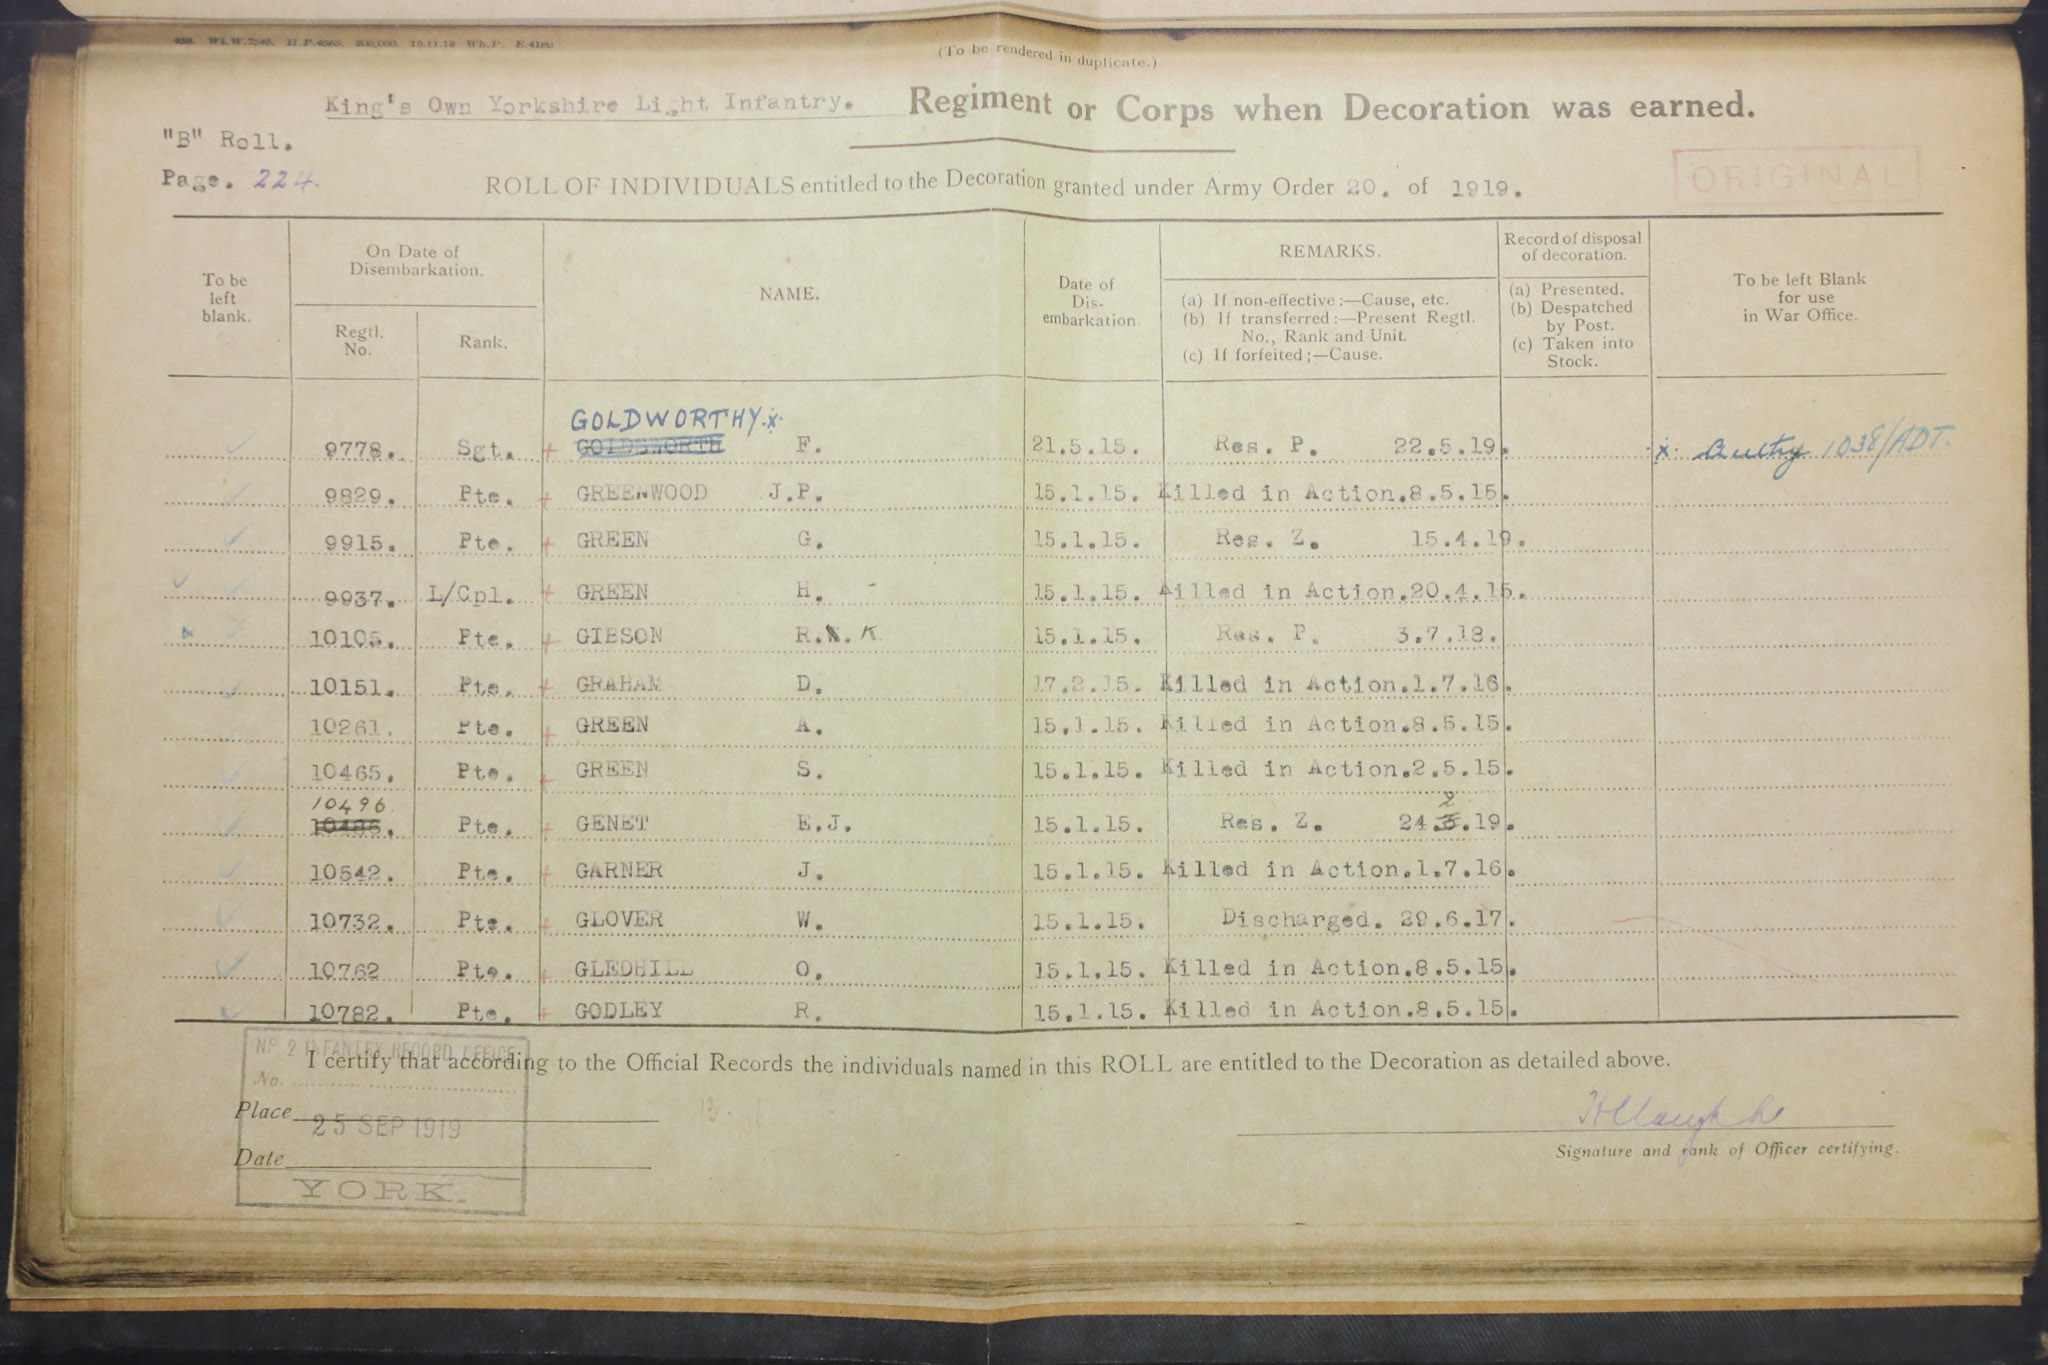 458. Wt.W.7545. H.P.4563. 200,000. 19.11.18 Wh.P. E.4180
(To be rendered in duplicate.)
King's Own Yorkshire Light Infantry. Regiment or Corps when Decoration was earned.
"B" Roll.
Page. 224.
ROLL OF INDIVIDUALS entitled to the Decoration granted under Army Order 20. of 1919.
ORIGINAL
To be left blank.
On Date of Disembarkation.
Regtl. No.
Rank.
NAME.
Date of Dis-embarkation.
REMARKS.
(a) If non-effective:—Cause, etc.
(b) If transferred:—Present Regtl. No., Rank and Unit.
(c) If forfeited;—Cause.
Record of disposal of decoration.
(a) Presented.
(b) Despatched by Post.
(c) Taken into Stock.
To be left Blank for use in War Office.
GOLDWORTHY.x
9778. Sgt. + GOLDSWORTH F. 21.5.15. Res. P. 22.5.19. x. Authy 1038/ADT.
9829. Pte. + GREENWOOD J.P. 15.1.15. Killed in Action.8.5.15.
9915. Pte. + GREEN G. 15.1.15. Res. Z. 15.4.19.
9937. L/Cpl. + GREEN H. 15.1.15. Killed in Action.20.4.15.
10105. Pte. + GIBSON R. K. 15.1.15. Res. P. 3.7.18.
10151. Pte. + GRAHAM D. 17.2.15. Killed in Action.1.7.16.
10261. Pte. + GREEN A. 15.1.15. Killed in Action.8.5.15.
10465. Pte. + GREEN S. 15.1.15. Killed in Action.2.5.15.
10496. 2
10486. Pte. + GENET E.J. 15.1.15. Res. Z. 24.3.19.
10542. Pte. + GARNER J. 15.1.15. Killed in Action.1.7.16.
10732. Pte. + GLOVER W. 15.1.15. Discharged. 29.6.17.
10762 Pte. + GLEDHILL O. 15.1.15. Killed in Action.8.5.15.
10782. Pte. + GODLEY R. 15.1.15. Killed in Action.8.5.15.
No 2 INFANTRY RECORD OFFICE
I certify that according to the Official Records the individuals named in this ROLL are entitled to the Decoration as detailed above.
No.
Place
25 SEP 1919
Signature and rank of Officer certifying.
Date
YORK.